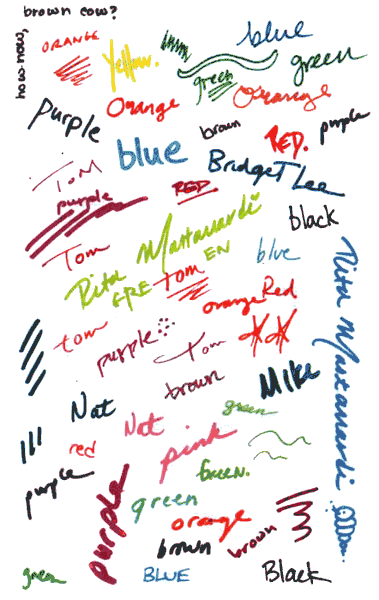 brown cow?
how now,
ORANGE
Yellow.
blue
green
green
orange
purple
Orange
brown
RED.
purple
blue
BridgeT Lee
Tom
purple
RED
black
Tom
Rita Mastanardi
EN
blue
GRE
tom
orange
Red
tom
purple
Tom
Rita Mastanardi
brown
Mike
Nat
green
Nat
red
pink
purple
Green.
purple
green
orange
brown
brown
green
BLUE
Black